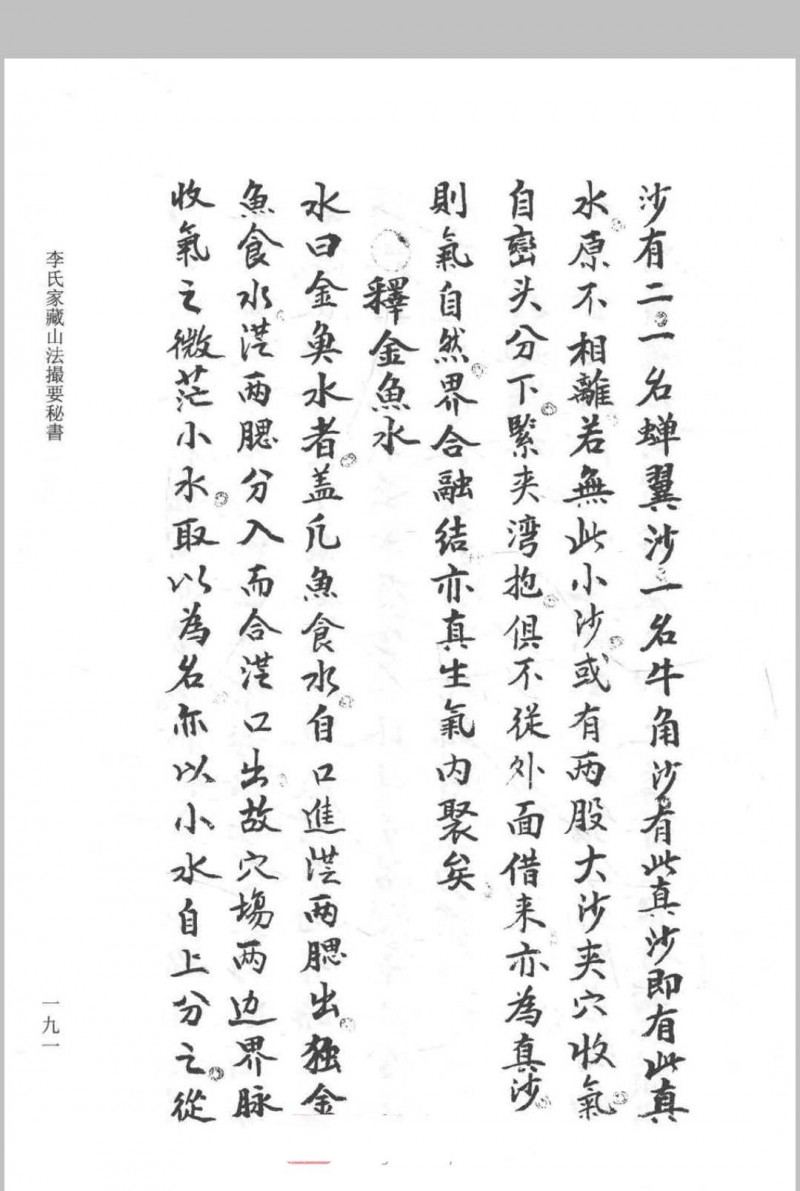 沙有二一名蟬翼沙一名牛角沙有此真沙即有此真
水原不相離若無此小沙或有两股大沙夾穴收氣
自巒头分下緊夹湾抱俱不從外面借来亦為真沙
則氣自然界合融結亦真生氣內聚矣
釋金魚水
水曰金魚水者盖凡魚食水自口進從两腮出独金
魚食水從两腮分入而合從口出故穴場两边界脉
收氣之微茫小水取以為名亦以小水自上分之從
李氏家藏山法撮要秘書
一九一